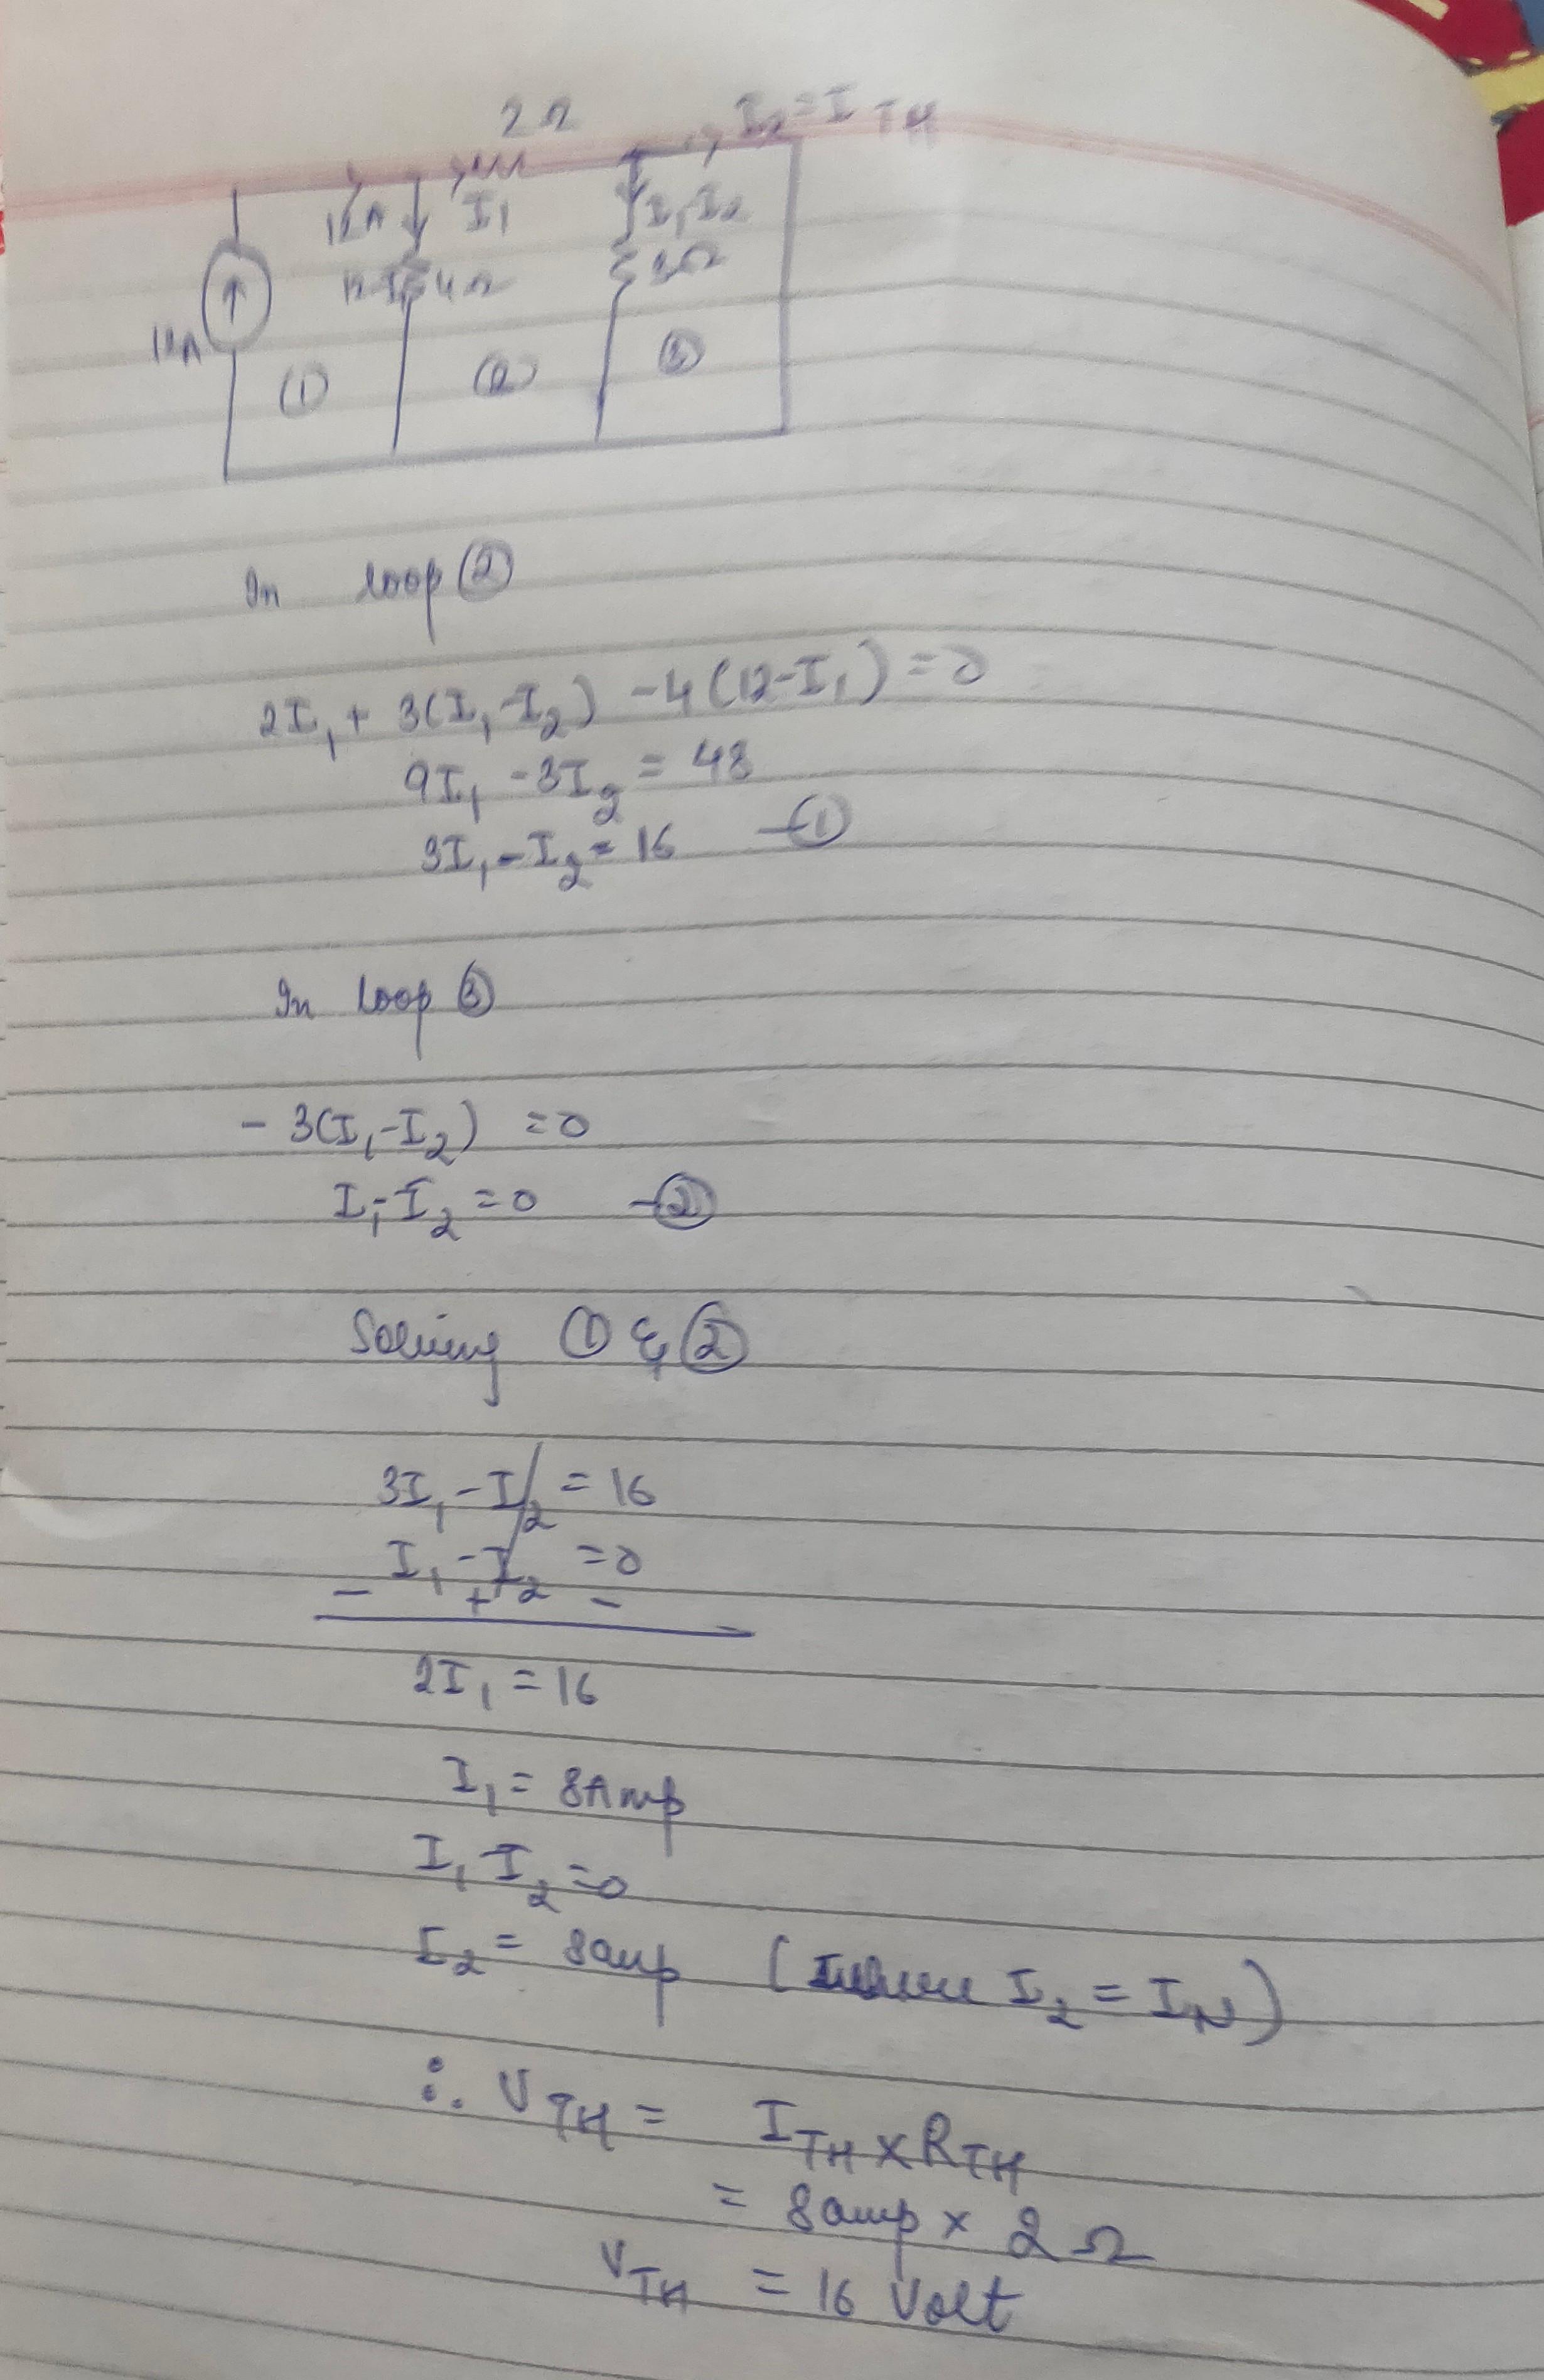 2Ω I₂=I TH
12A I₁ I₁-I₂
12-I₁ 4Ω 3Ω
12A
① ② ③
In loop ②
2I₁ + 3(I₁-I₂) -4(12-I₁) =0
9I₁ -3I₂ = 48
3I₁-I₂= 16 -①
In loop ③
- 3(I₁-I₂) =0
I₁-I₂ =0 -②
Solving ① & ②
3I₁-I₂ = 16
I₁-I₂ =0
- + -
2I₁ = 16
I₁ = 8Amp
I₁ I₂ =0
I₂ = 8amp ( I₂ = I_N)
∴ V_TH = I_TH × R_TH
= 8amp × 2Ω
V_TH = 16 Volt